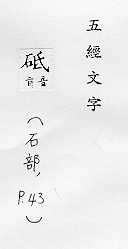 五經文字
砥
音旨
(石部,
P.43)